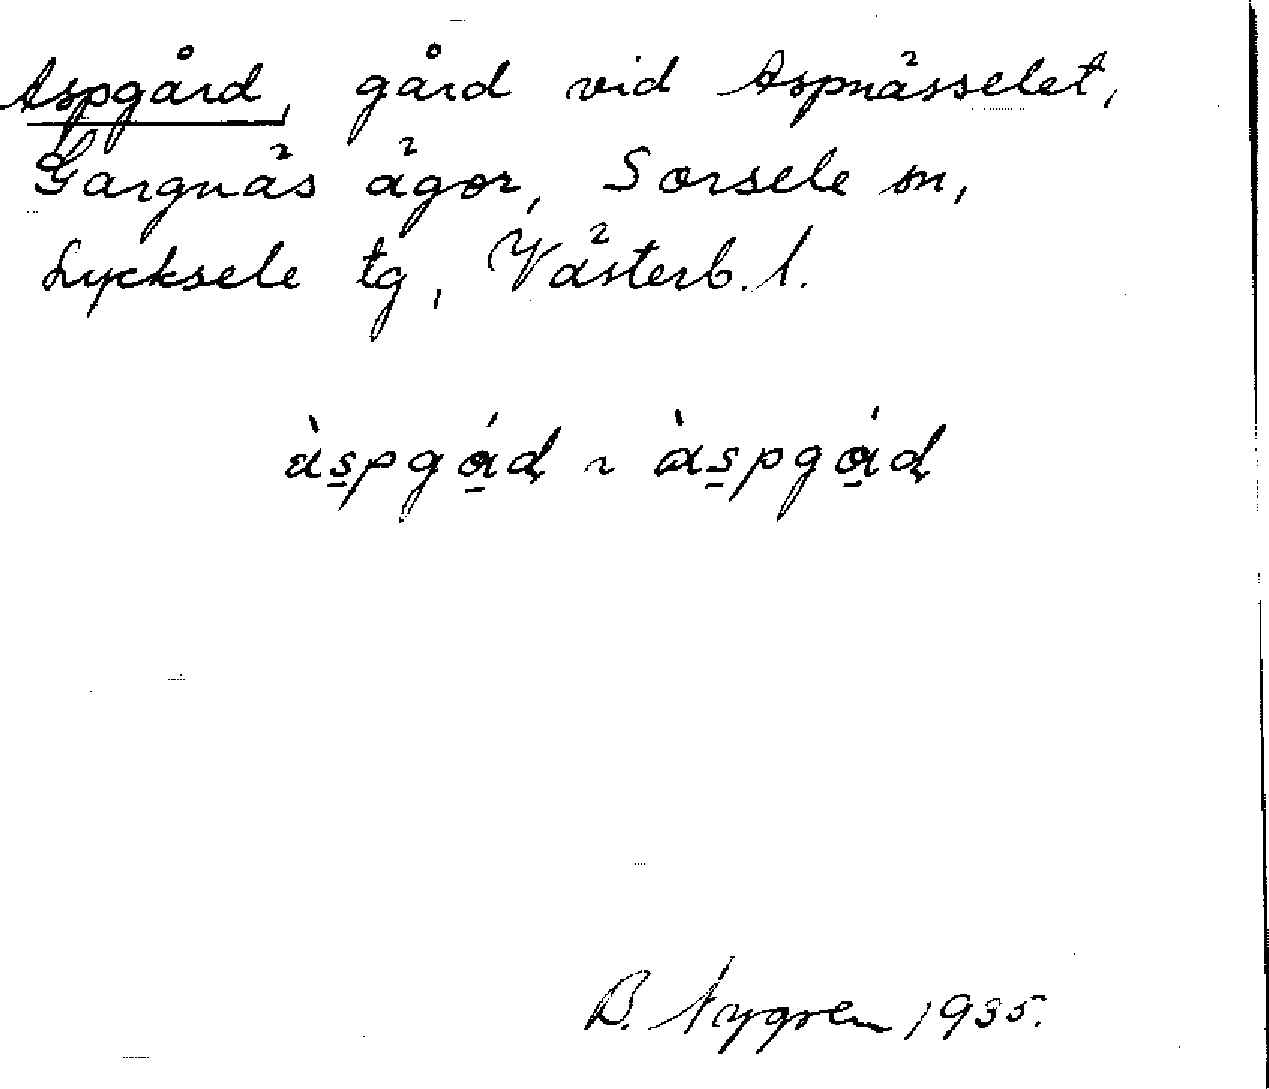 Aspgård, gård vid Aspnässelet,
Gargnäs ägor, Sorsele sn,
Lycksele tg, Västerb. l.
àspgád ~ àspgád
B. Nygren 1935.